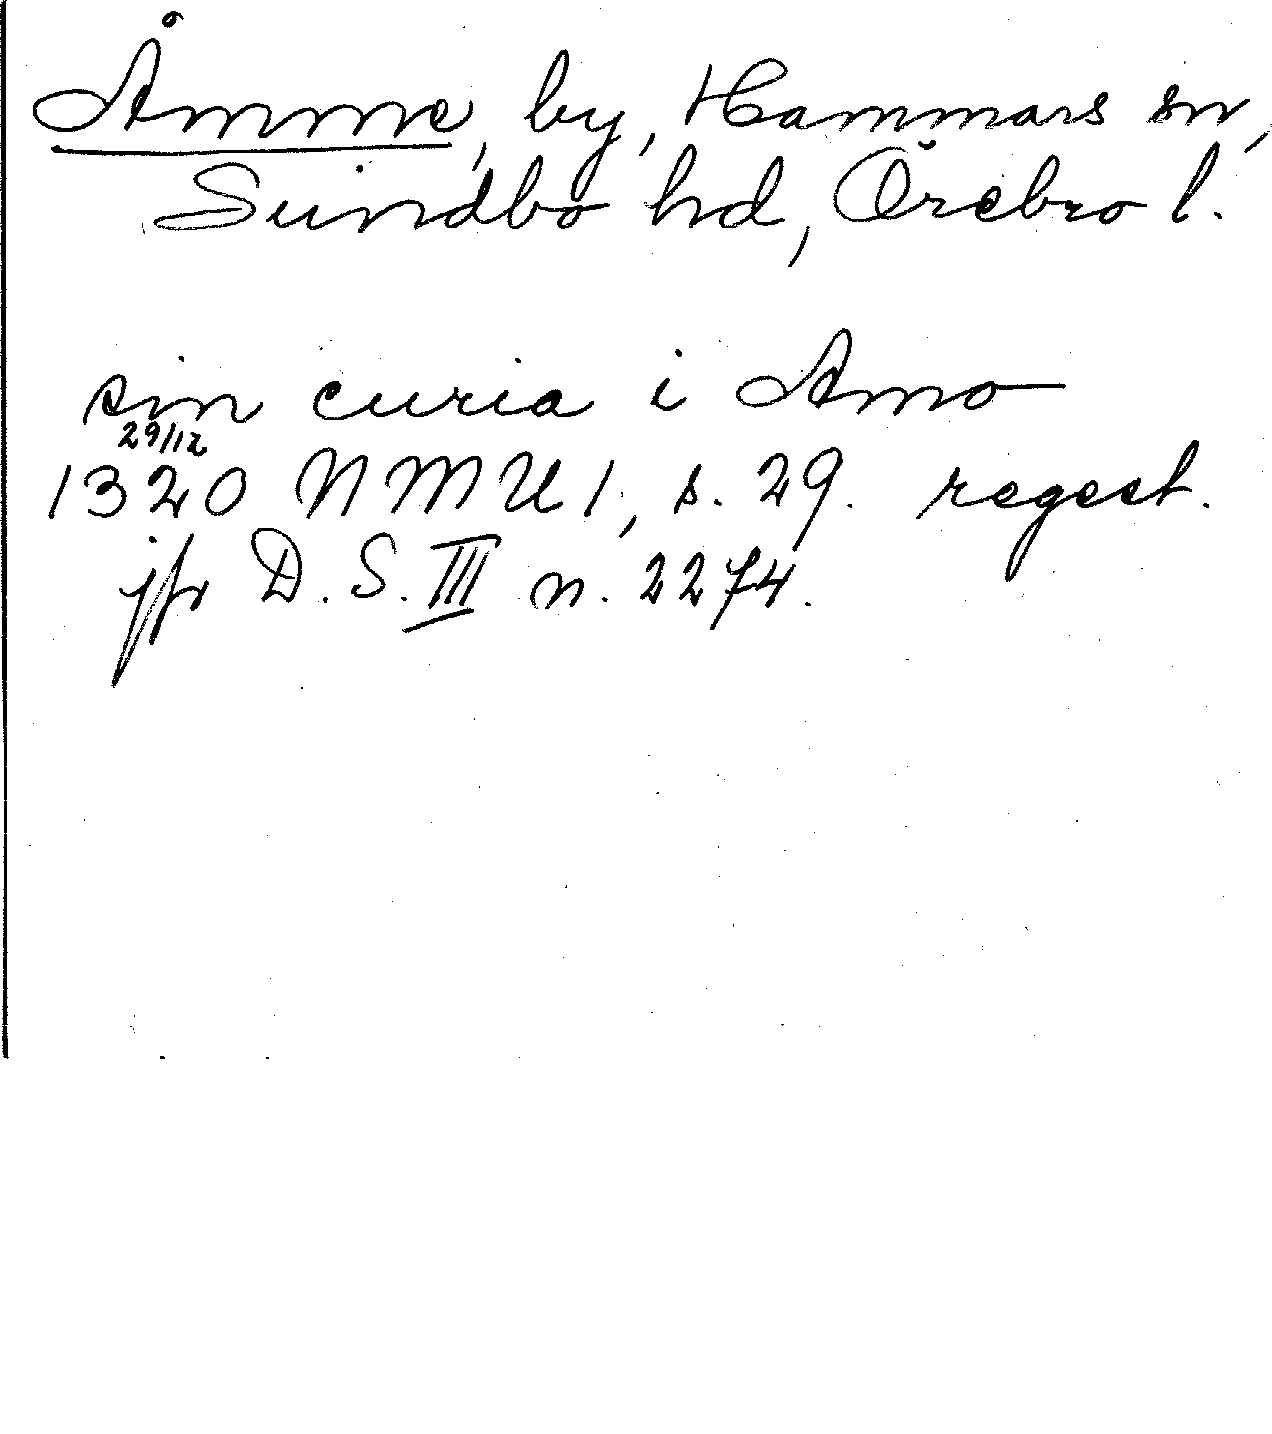 Åmme, by, Hammars sn,
Sundbo hd, Örebro l.
sin curia i Amo
29/12
1320 NMU 1, s. 29. regest.
jfr D. S. III n. 2274.